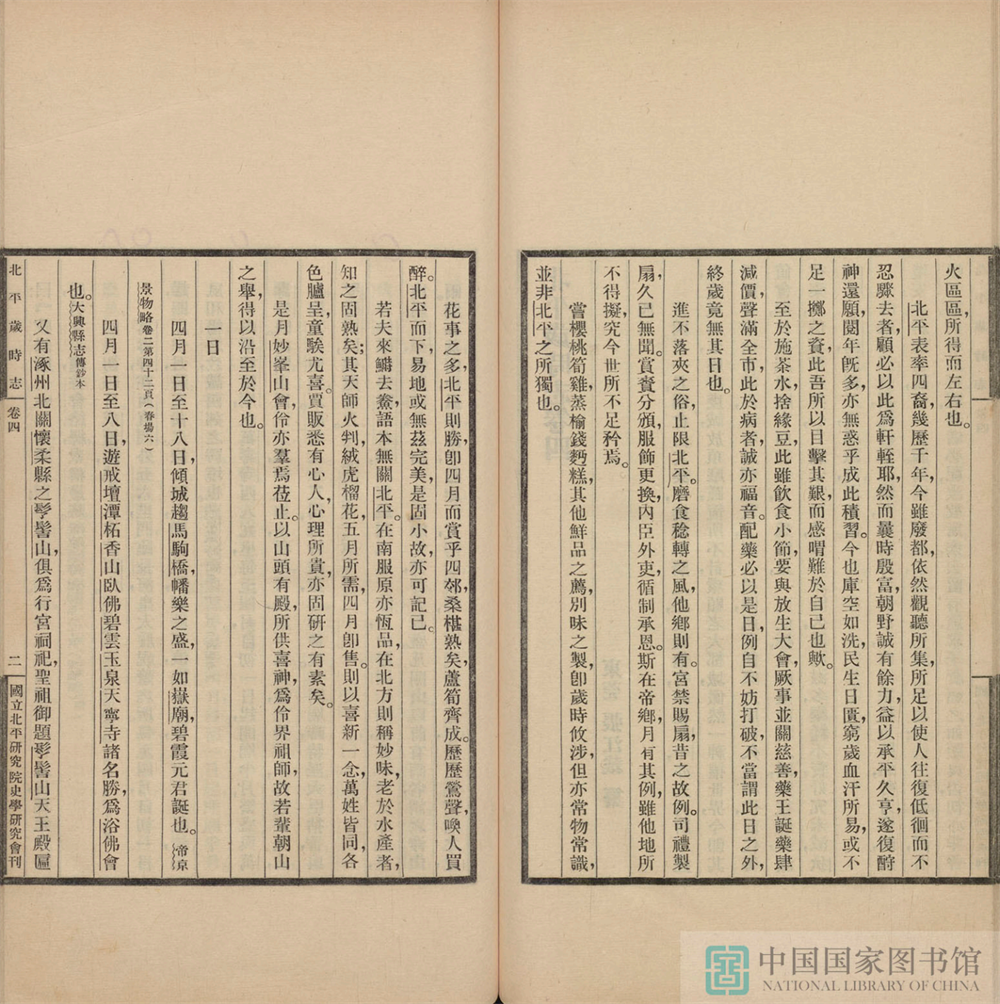 火區區,所得而左右也。
北平表率四裔,幾歷千年,今雖廢都,依然觀聽所集,所足以使人往復低徊而不
忍驟去者,顧必以此爲軒輊耶,然而曩時殷富,朝野誠有餘力,益以承平久亨,遂復酧
神還願,閱年既多,亦無惑乎成此積習。今也庫空如洗,民生日匱,窮歲血汗所易,或不
足一擲之資,此吾所以目擊其艱,而感喟難於自已也歟。
至於施茶水,捨緣豆,此雖飲食小節,要與放生大會,厥事並關慈善,藥王誕藥肆
減價,聲滿全市,此於病者,誠亦福音。配藥必以是日,例自不妨打破,不當謂此日之外,
終歲竟無其日也。
進不落夾之俗,止限北平。磨食稔轉之風,他鄉則有。宮禁賜扇,昔之故例。司禮製
扇,久已無聞。賞賚分頒,服飾更換,內臣外吏,循制承恩。斯在帝鄉,月有其例,雖他地所
不得擬,究今世所不足矜焉。
嘗櫻桃筍雞,蒸榆錢麪糕,其他鮮品之薦,別味之製,卽歲時攸涉,但亦常物常識,
並非北平之所獨也。
花事之多,北平則勝,卽四月而賞乎四郊,桑椹熟矣,蘆筍齊成。歷歷鶯聲,喚人買
醉。北平而下,易地或無茲完美,是固小故,亦可記已。
若夫來鰣去鮝,語本無關北平。在南服原亦恆品,在北方則稱妙味,老於水產者,
知之固熟矣;其天師火判,絨虎榴花,五月所需,四月卽售。則以喜新一念,萬姓皆同,各
色臚呈,童騃尤喜。買販悉有心人,心理所貴,亦固研之有素矣。
是月妙峯山會,伶亦羣焉莅止。以山頭有殿,所供喜神,爲伶界祖師,故若輩朝山
之舉,得以沿至於今也。
一日
四月一日至十八日,傾城趨馬駒橋,幡樂之盛,一如嶽廟,碧霞元君誕也。(帝京
景物略卷二第四十二頁(春場六)
四月一日至八日,遊戒壇潭柘香山臥佛碧雲玉泉天寧寺諸名勝,爲浴佛會
也。大興縣志傳鈔本
又有涿州北關懷柔縣之髽髻山,俱爲行宮祠祀,聖祖御題髽髻山天王殿匾
北平歲時志
卷四
二
國立北平研究院史學研究會刊
中国国家图书馆
NATIONAL LIBRARY OF CHINA